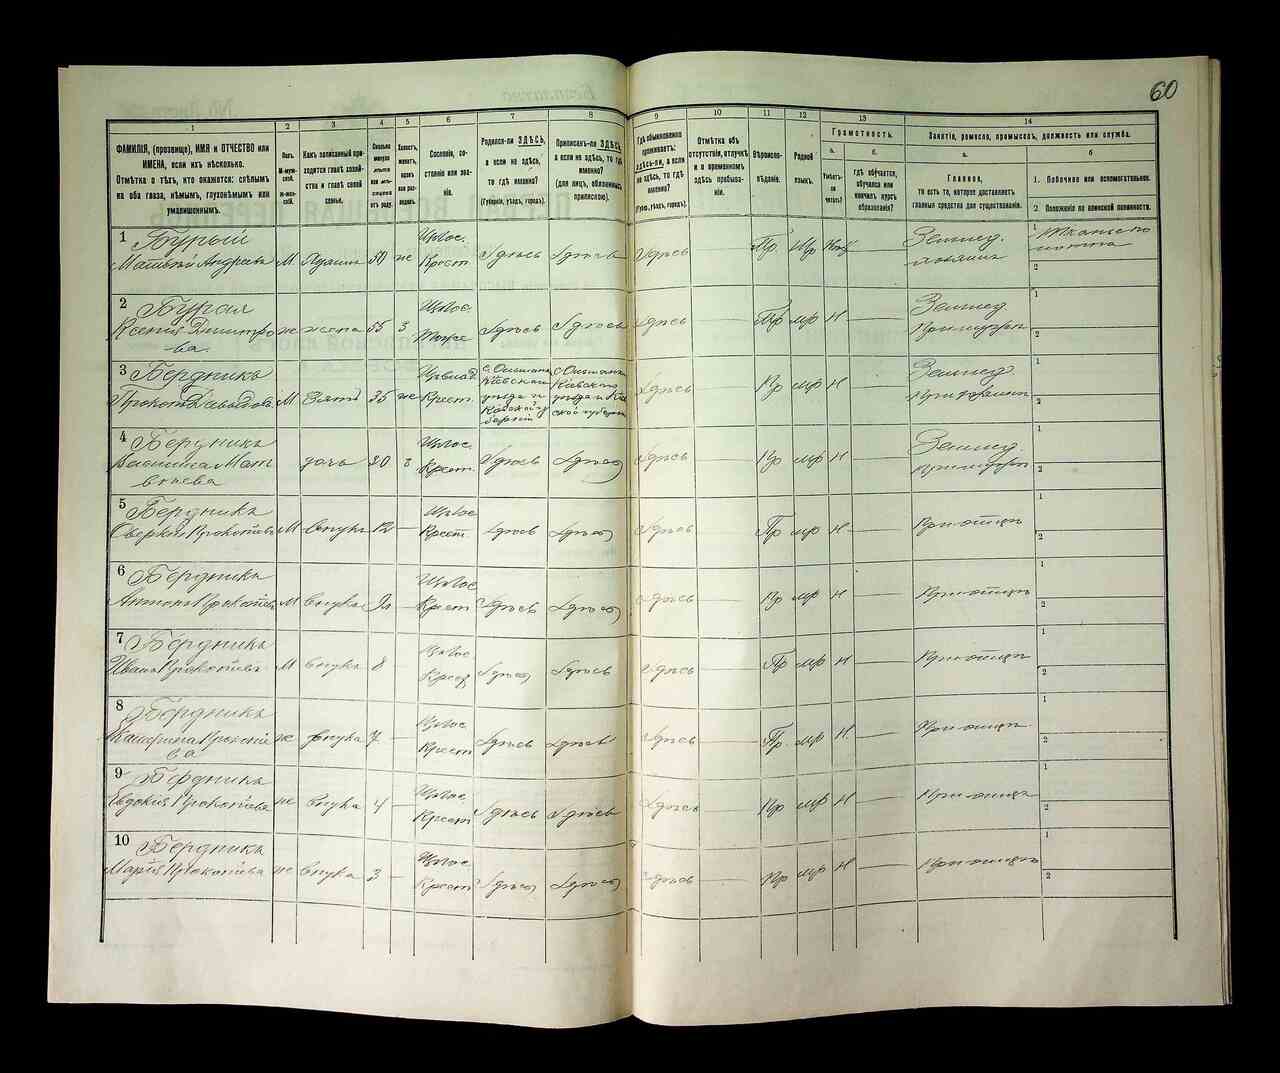 60
1 2 3 4 5 6 7 8 9 10 11 12 13 14
ФАМИЛІЯ, (прозвище), ИМЯ и ОТЧЕСТВО или
ИМЕНА, если ихъ нѣсколько.
Отмѣтка о тѣхъ, кто окажется: слѣпымъ
на оба глаза, нѣмымъ, глухонѣмымъ или
умалишеннымъ.
Полъ.
М-муж-
ской.
Ж-жен-
скій.
Какъ записанный при-
ходится главѣ хозяй-
ства и главѣ своей
семьи.
Сколько
минуло
лѣтъ
отъ роду.
Холостъ,
женатъ,
вдовъ
или раз-
веденъ.
Сословіе, со-
стояніе или зва-
ніе.
Родился-ли ЗДѢСЬ,
а если не здѣсь,
то гдѣ именно?
(Губернія, уѣздъ, городъ).
Приписанъ-ли ЗДѢСЬ,
а если не здѣсь, то гдѣ
именно?
(для лицъ, обязанныхъ
припискою).
Гдѣ обыкновенно
проживаетъ:
здѣсь-ли, а если
не здѣсь, то гдѣ
именно?
(Губер., уѣздъ, городъ).
Отмѣтка объ
отсутствіи, отлучкѣ
и о временномъ
здѣсь пребыва-
ніи.
Вѣроиспо-
вѣданіе.
Родной
языкъ.
Грамотность.
а.
Умѣетъ-
ли
читать?
б.
гдѣ обучается,
обучался или
кончилъ курсъ
образованія?
Занятіе, ремесло, промыселъ, должность или служба.
а.
Главное,
то есть то, которое доставляетъ
главныя средства для существованія.
б
1. Побочное или вспомогательное.
2. Положеніе по воинской повинности.
1 Бурый
Матвѣй Андреевъ М 50 ж Крест. Здѣсь Здѣсь Здѣсь — Пр. Мр — Землед. 1
2
2 Бурая
Ксенія Дмитро
ва. ж жена 55 з Тоже Здѣсь Здѣсь Здѣсь — Пр мр Н — Землед. 1
2
3 Бердникъ
Прокопъ Давыдовъ М Зять 35 ж Крест. Здѣсь — Пр мр Н — Землед. 1
2
4 Бердникъ
Мат
вѣева дочь 30 з Крест. Здѣсь Здѣсь Здѣсь — Пр мр Н — Землед. 1
2
5 Бердникъ
Прокопіевъ М внукъ 12 — Крест Здѣсь Здѣсь Здѣсь — Пр мр Н — При отцѣ 1
2
6 Бердникъ
Антонъ Прокопіевъ М внукъ — Крест Здѣсь Здѣсь Здѣсь — Пр мр Н — При отцѣ 1
2
7 Бердникъ
Иванъ Прокопіевъ М внукъ 8 — Крест Здѣсь Здѣсь Здѣсь — Пр мр Н — При отцѣ 1
2
8 Бердникъ
Прокопіе
ва ж внука 7 — Крест Здѣсь Здѣсь Здѣсь — Пр. мр Н — При отцѣ 1
2
9 Бердникъ
Евдокія Прокопіева ж внука 4 — Крест Здѣсь Здѣсь Здѣсь — Пр мр Н — При отцѣ 1
2
10 Бердникъ
Марія Прокопіева ж внука 3 — Крест Здѣсь Здѣсь Здѣсь — Пр мр Н — При отцѣ 1
2